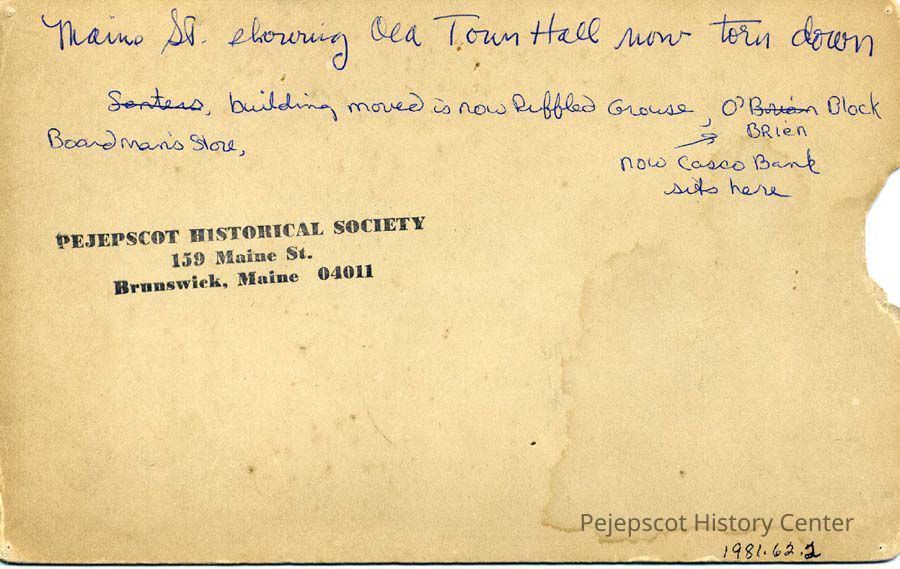 Maine St. showing Old Town Hall now torn down
Senters, building moved is now Ruffled Grouse, O'Brian Block
BRien
Boardman's Store,
now Casco Bank
sits here
PEJEPSCOT HISTORICAL SOCIETY
159 Maine St.
Brunswick, Maine 04011
Pejepscot History Center
1981.62.2